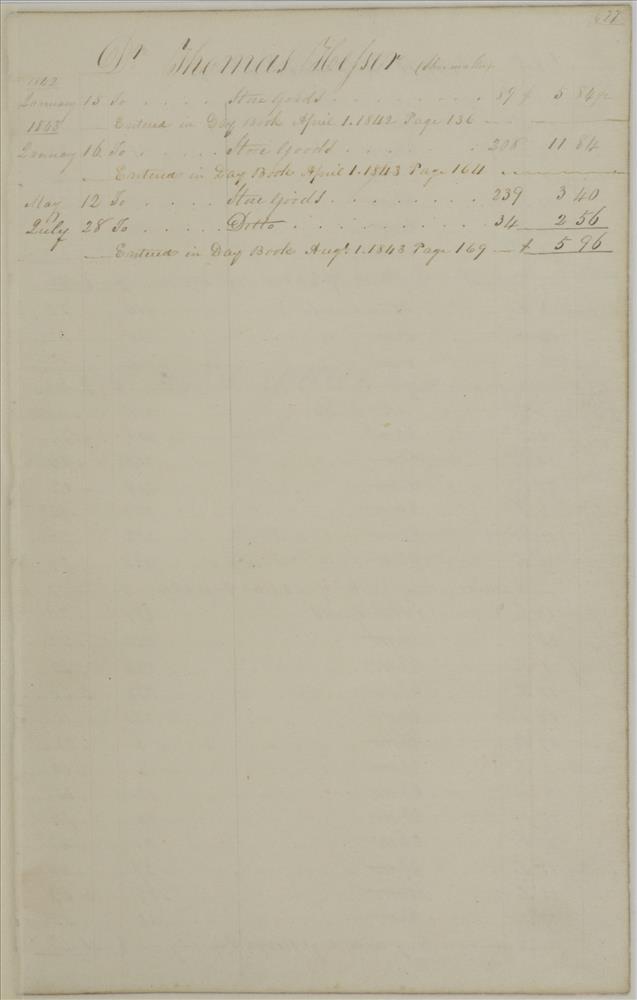 627
Dr Thomas Hesser (Shoemaker)
1842
January 15 To . . . . Store Goods . . . . . . . . 89 $ 5 84
Entered in Day Book April 1. 1842 Page 136
1843
January 16 To . . . . Store Goods . . . . . . 208 11 84
Entered in Day Book April 1. 1843 Page 164
May 12 To . . . . Store Goods . . . . . . . . 239 3 40
July 28 To . . . . . Ditto . . . . . . . . . . 34 2 56
Entered in Day Book Augt. 1. 1843 Page 169 — $ 5 96